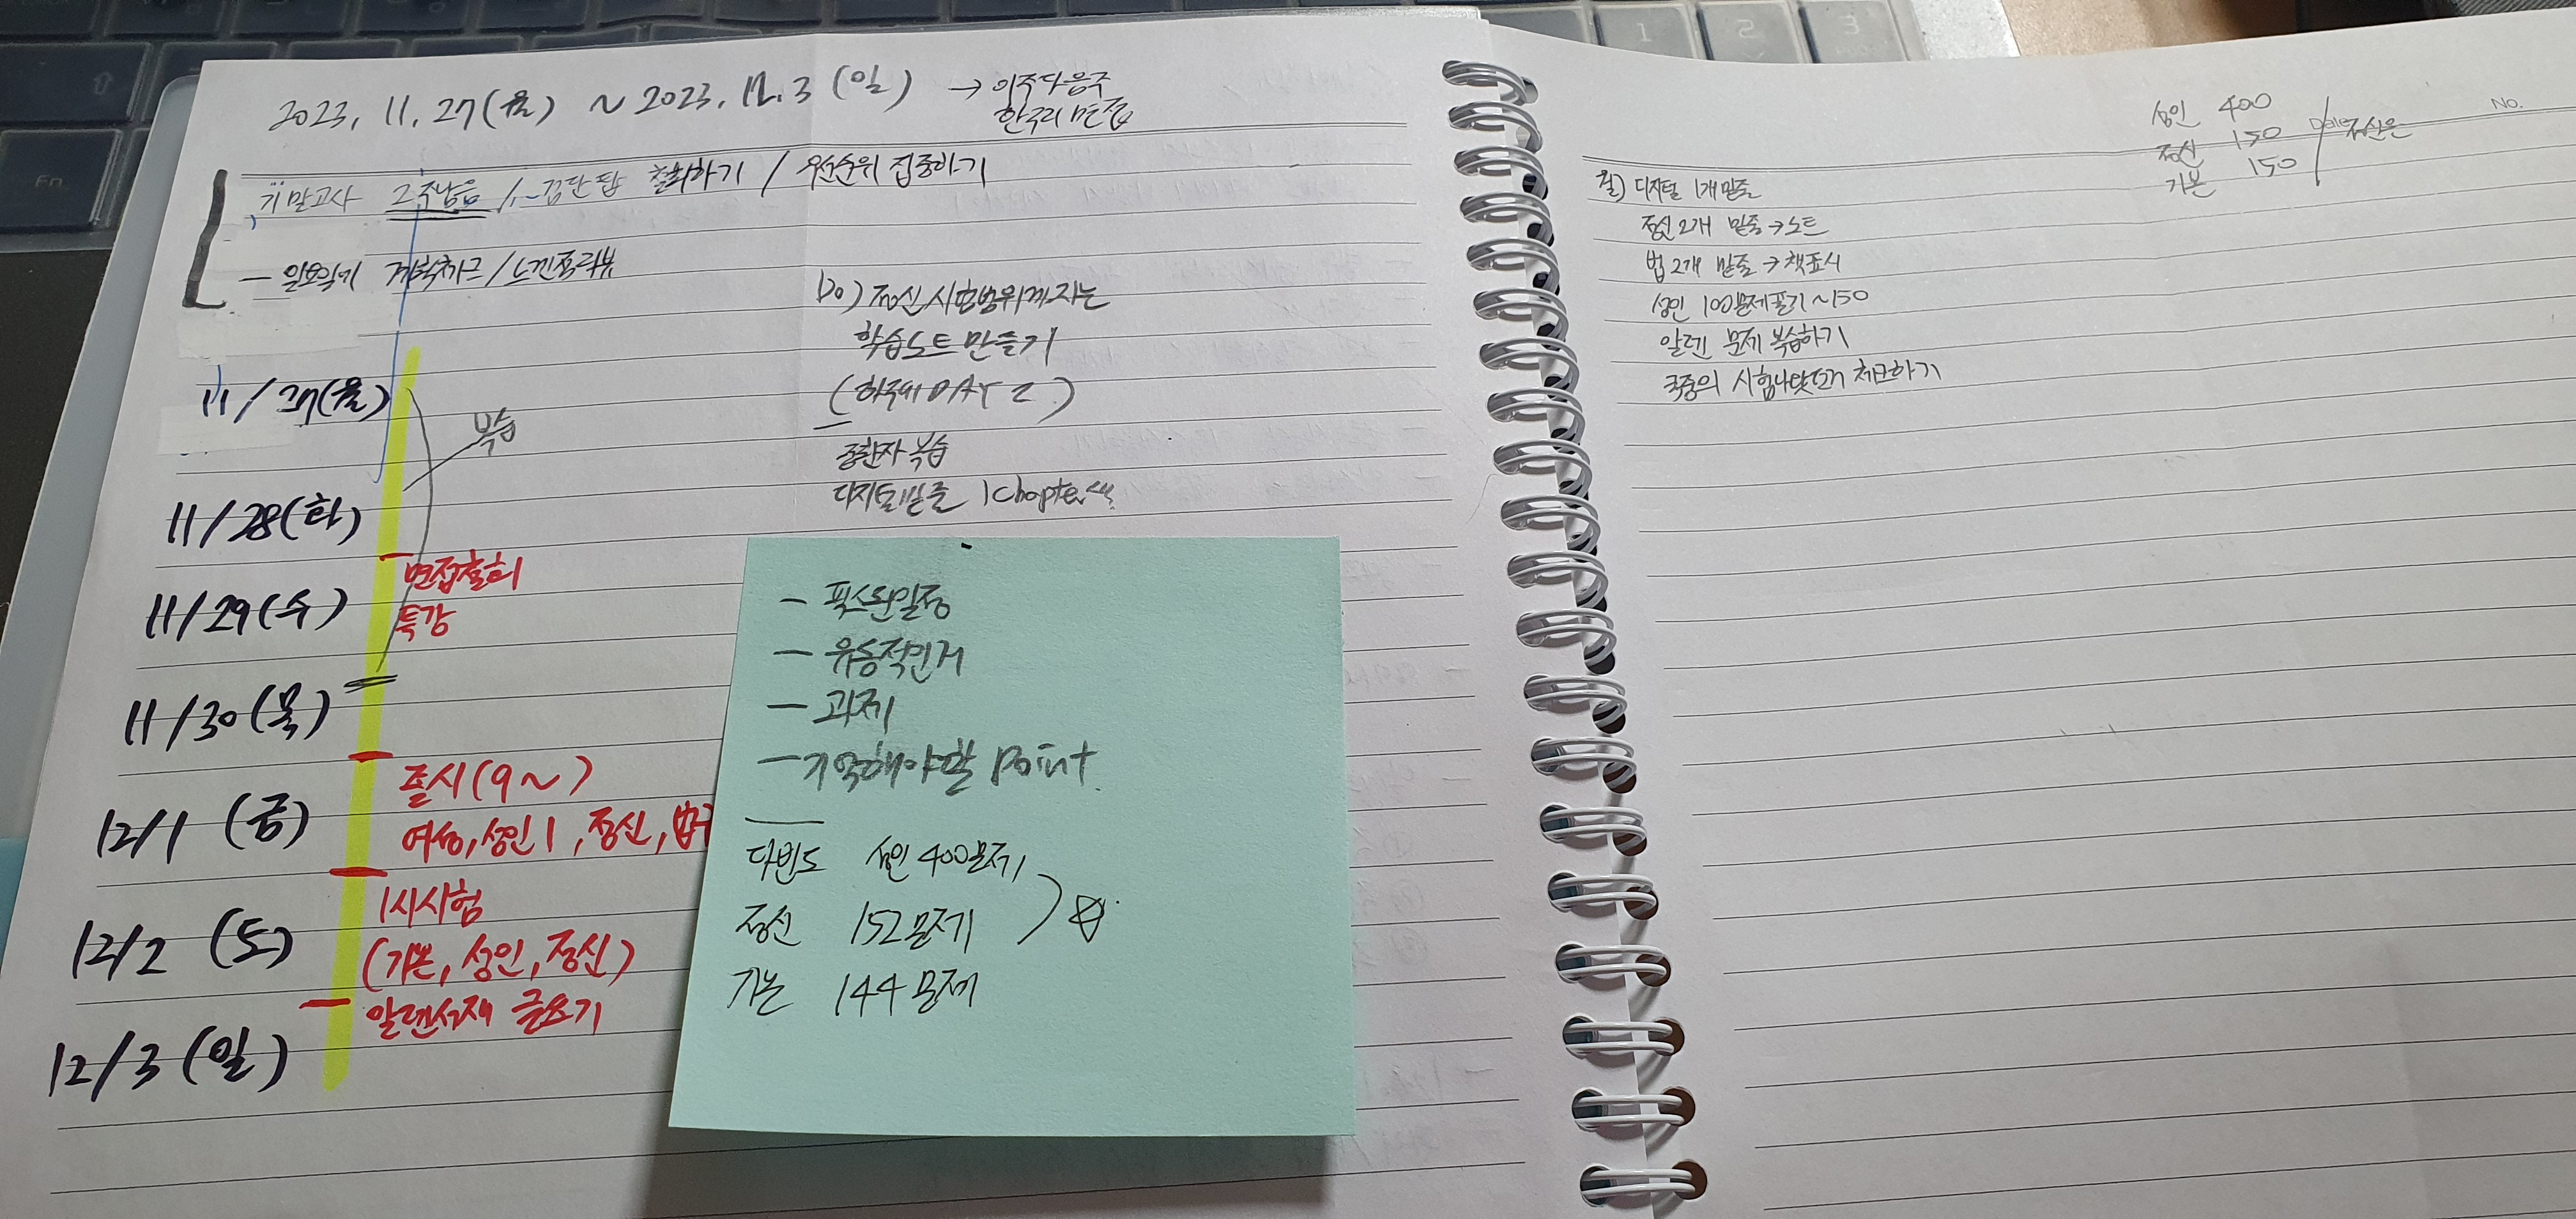 2023. 11. 27(월) ~ 2023. 12. 3 (일) → 이주다음주
한국리 면접
기말고사 2주남음 / 꼼단탑 철회하기 / 우선순위 집중하기
- 일요일기 계획체크 / 스낀풀리뷰
Do) 정신시험범위까지는
학습노트 만들기
(하루에 DAY 2)
중환자 복습
디지털밑줄 1 Chapter씩
11/27(월)
복습
11/28(화)
면접철회
특강
11/29(수)
11/30(목)
졸시(9~)
12/1 (금)
여성, 성인1, 정신, 법규
1시시험
12/2 (토)
(기본, 성인, 정신)
알렌서재 글쓰기
12/3 (일)
- 픽스된일정
- 유동적인거
- 과제
- 기억해야할 Point
다빈도 성인 400문제
정신 152문제
기본 144문제
성인 400
정신 150
기본 150
No.
Date
월) 디지털 1개밑줄
정신 2개 밑줄 → 노트
법 2개 밑줄 → 책표시
성인 100문제풀기 ~150
알렌 문제 복습하기
국중의 시험나왔던거 체크하기
1
2
3
Fn